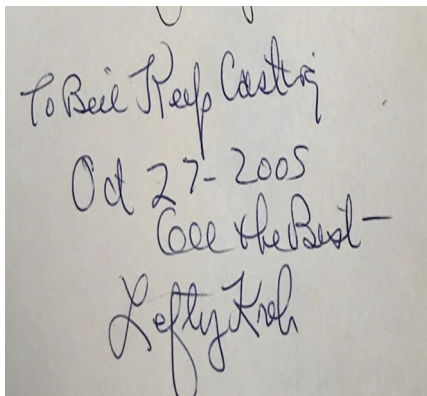 To Bill Keep Casting
Oct 27-2005
All the Best-
Lefty Kreh